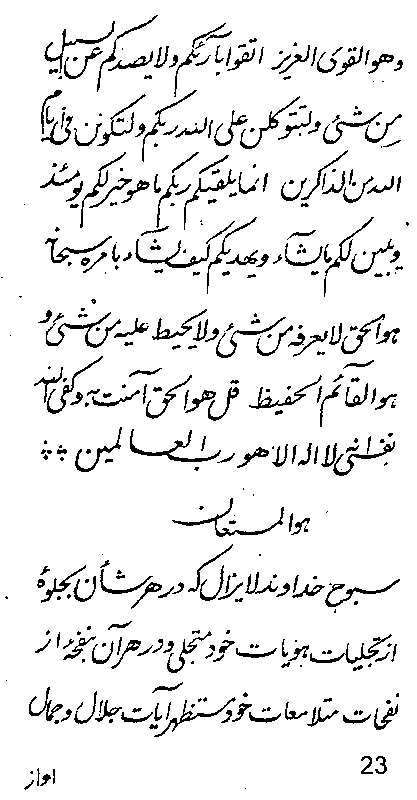 وهو القوى العزيز اتقوا بارئكم ولا يصدكم عن السبيل
من شئ ولتتوكلن على الله ربكم ولتكونن فى ايام
الله من الذاكرين انما يلقيكم ربكم ما هو خير لكم يومئذ
ويبين لكم ما يشآء ويهديكم كيف يشآء بامره سبحانه
هو الحق لا يعرفه من شئ ولا يحيط عليه من شئ و
هو القآئم الحفيظ قل هو الحق آمنت به وكفى الله
بنفسه انى لا اله الا هو رب العالمين
هو المستعان
سبوح خداوند لا يزال كه در هر شأن بجلوهٔ
از تجليات هويات خود متجلى و در هر آن بنفحهٔ از
نفحات متلامعات خود مستظهر آيات جلال و جمال
23
اواز